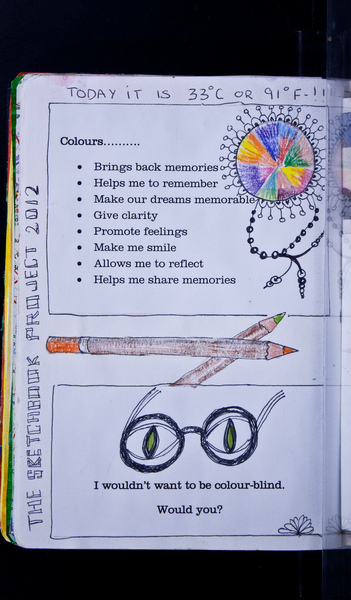 TODAY iT iS 33°C OR 91°F-!!!
Colours..........
• Brings back memories
• Helps me to remember
• Make our dreams memorable
• Give clarity
• Promote feelings
• Make me smile
• Allows me to reflect
• Helps me share memories
THE SKETCHBOOK PROJECT 2012
I wouldn't want to be colour-blind.
Would you?